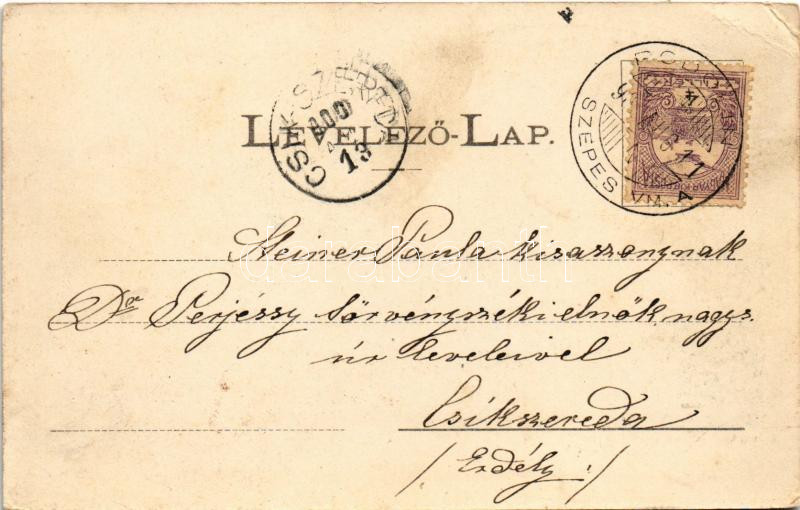 LEVELEZŐ-LAP.
CSIK-SZEREDA
13
SZEPES VM.
A
Steiner Paula kisaszonynak
Dr Perjéssy törvényszéki elnök, nagys.
úr leveleivel
Csíkszereda
/Erdély./